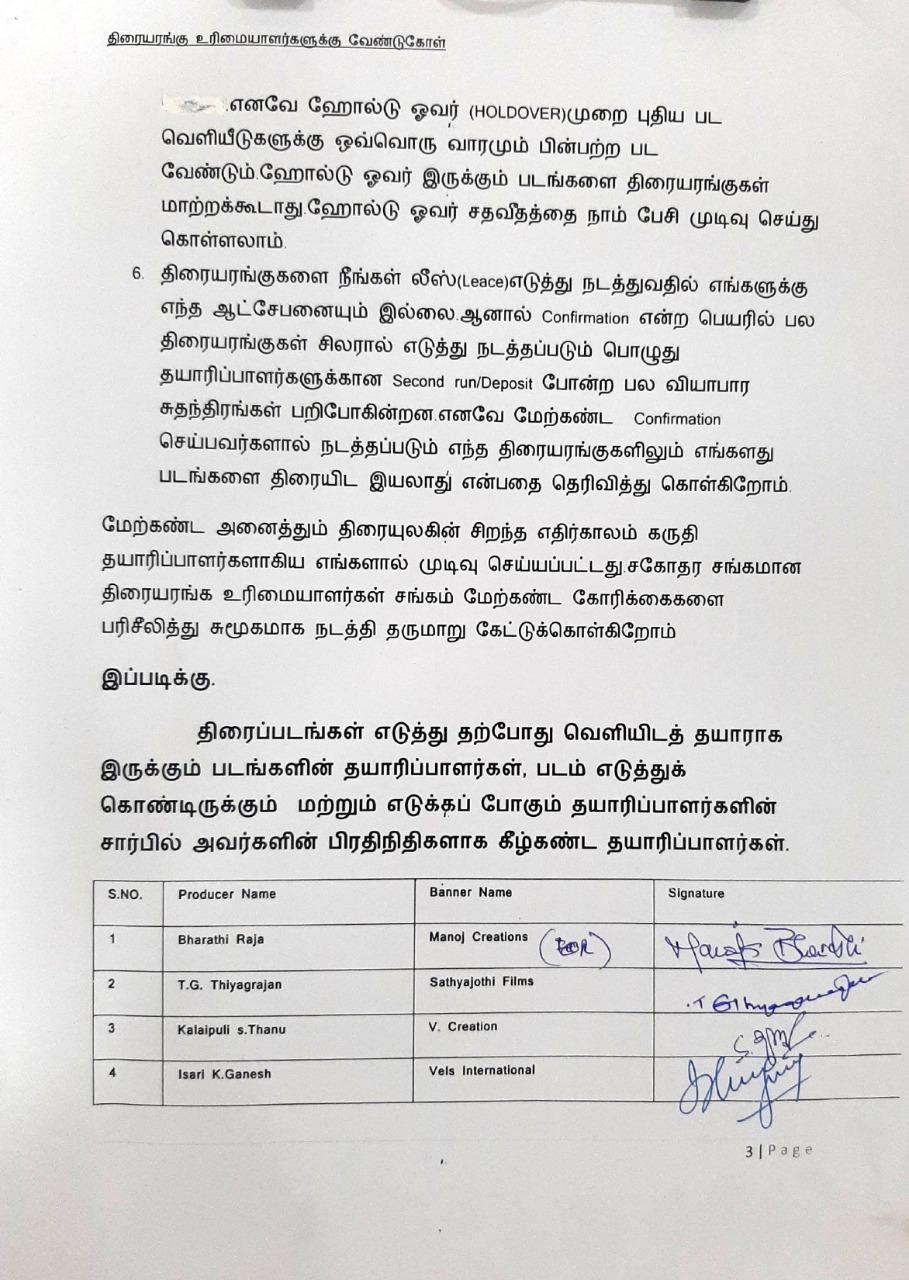 திரையரங்கு உரிமையாளர்களுக்கு வேண்டுகோள்
.எனவே ஹோல்டு ஓவர் (HOLDOVER)முறை புதிய பட
வெளியீடுகளுக்கு ஒவ்வொரு வாரமும் பின்பற்ற பட
வேண்டும்.ஹோல்டு ஓவர் இருக்கும் படங்களை திரையரங்குகள்
மாற்றக்கூடாது.ஹோல்டு ஓவர் சதவீதத்தை நாம் பேசி முடிவு செய்து
கொள்ளலாம்.
6. திரையரங்குகளை நீங்கள் லீஸ்(Leace)எடுத்து நடத்துவதில் எங்களுக்கு
எந்த ஆட்சேபனையும் இல்லை.ஆனால் Confirmation என்ற பெயரில் பல
திரையரங்குகள் சிலரால் எடுத்து நடத்தப்படும் பொழுது
தயாரிப்பாளர்களுக்கான Second run/Deposit போன்ற பல வியாபார
சுதந்திரங்கள் பறிபோகின்றன.எனவே மேற்கண்ட Confirmation
செய்பவர்களால் நடத்தப்படும் எந்த திரையரங்குகளிலும் எங்களது
படங்களை திரையிட இயலாது என்பதை தெரிவித்து கொள்கிறோம்.
மேற்கண்ட அனைத்தும் திரையுலகின் சிறந்த எதிர்காலம் கருதி
தயாரிப்பாளர்களாகிய எங்களால் முடிவு செய்யப்பட்டது.சகோதர சங்கமான
திரையரங்க உரிமையாளர்கள் சங்கம் மேற்கண்ட கோரிக்கைகளை
பரிசீலித்து சுமூகமாக நடத்தி தருமாறு கேட்டுக்கொள்கிறோம்
இப்படிக்கு.
திரைப்படங்கள் எடுத்து தற்போது வெளியிடத் தயாராக
இருக்கும் படங்களின் தயாரிப்பாளர்கள், படம் எடுத்துக்
கொண்டிருக்கும் மற்றும் எடுக்கப் போகும் தயாரிப்பாளர்களின்
சார்பில் அவர்களின் பிரதிநிதிகளாக கீழ்கண்ட தயாரிப்பாளர்கள்.
S.NO. Producer Name Banner Name Signature
1 Bharathi Raja Manoj Creations
2 T.G. Thiyagrajan Sathyajothi Films
3 Kalaipuli s.Thanu V. Creation
4 Isari K.Ganesh Vels International
3 | Page